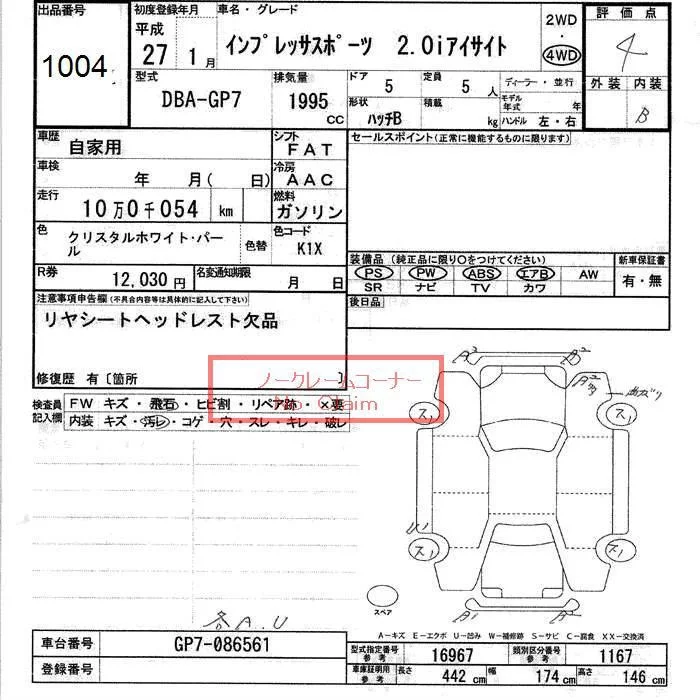 出品番号
1004
初度登録年月
平成
27 1月
車名・グレード
インプレッサスポーツ 2.0iアイサイト
2WD
・
4WD
評価点
4
外装 内装
B
型式
DBA-GP7
排気量
1995
CC
ドア
5
定員
5 人
形状
ハッチB
積載
kg
ディーラー・並行
モデル
年式 年
ハンドル 左・右
車歴
自家用
シフト
FAT
車検
年 月( 日)
冷房
AAC
走行
10万0千054 km
燃料
ガソリン
色
クリスタルホワイト・パー
ル
色替
色コード
K1X
R券
12,030円
名変通知期限
月 日
セールスポイント(正常に機能するものに限ります)
装備品(純正品に限り○をつけてください)
PS PW ABS エアB AW
SR ナビ TV カワ
新車保証書
有・無
後日品
注意事項申告欄(不具合内容等は具体的に記入して下さい)
リヤシートヘッドレスト欠品
修復歴 有〔箇所 〕
ノークレームコーナー
No Claim
検査員
記入欄
FW キズ・飛石・ヒビ割・リペア跡・×要
内装 キズ・汚レ・コゲ・穴・スレ・キレ・破レ
A2
A2
A2
ス1
ス1
U1
ス1
ス1
A1
スペア
各A.U
A-キズ E-エクボ U-凹み W-補修跡 S-サビ C-腐食 XX-交換済
車台番号
GP7-086561
登録番号
型式指定番号
参考
16967
類別区分番号
参考
1167
車庫証明用
参考
長さ 442 cm 幅 174 cm 高さ 146 cm